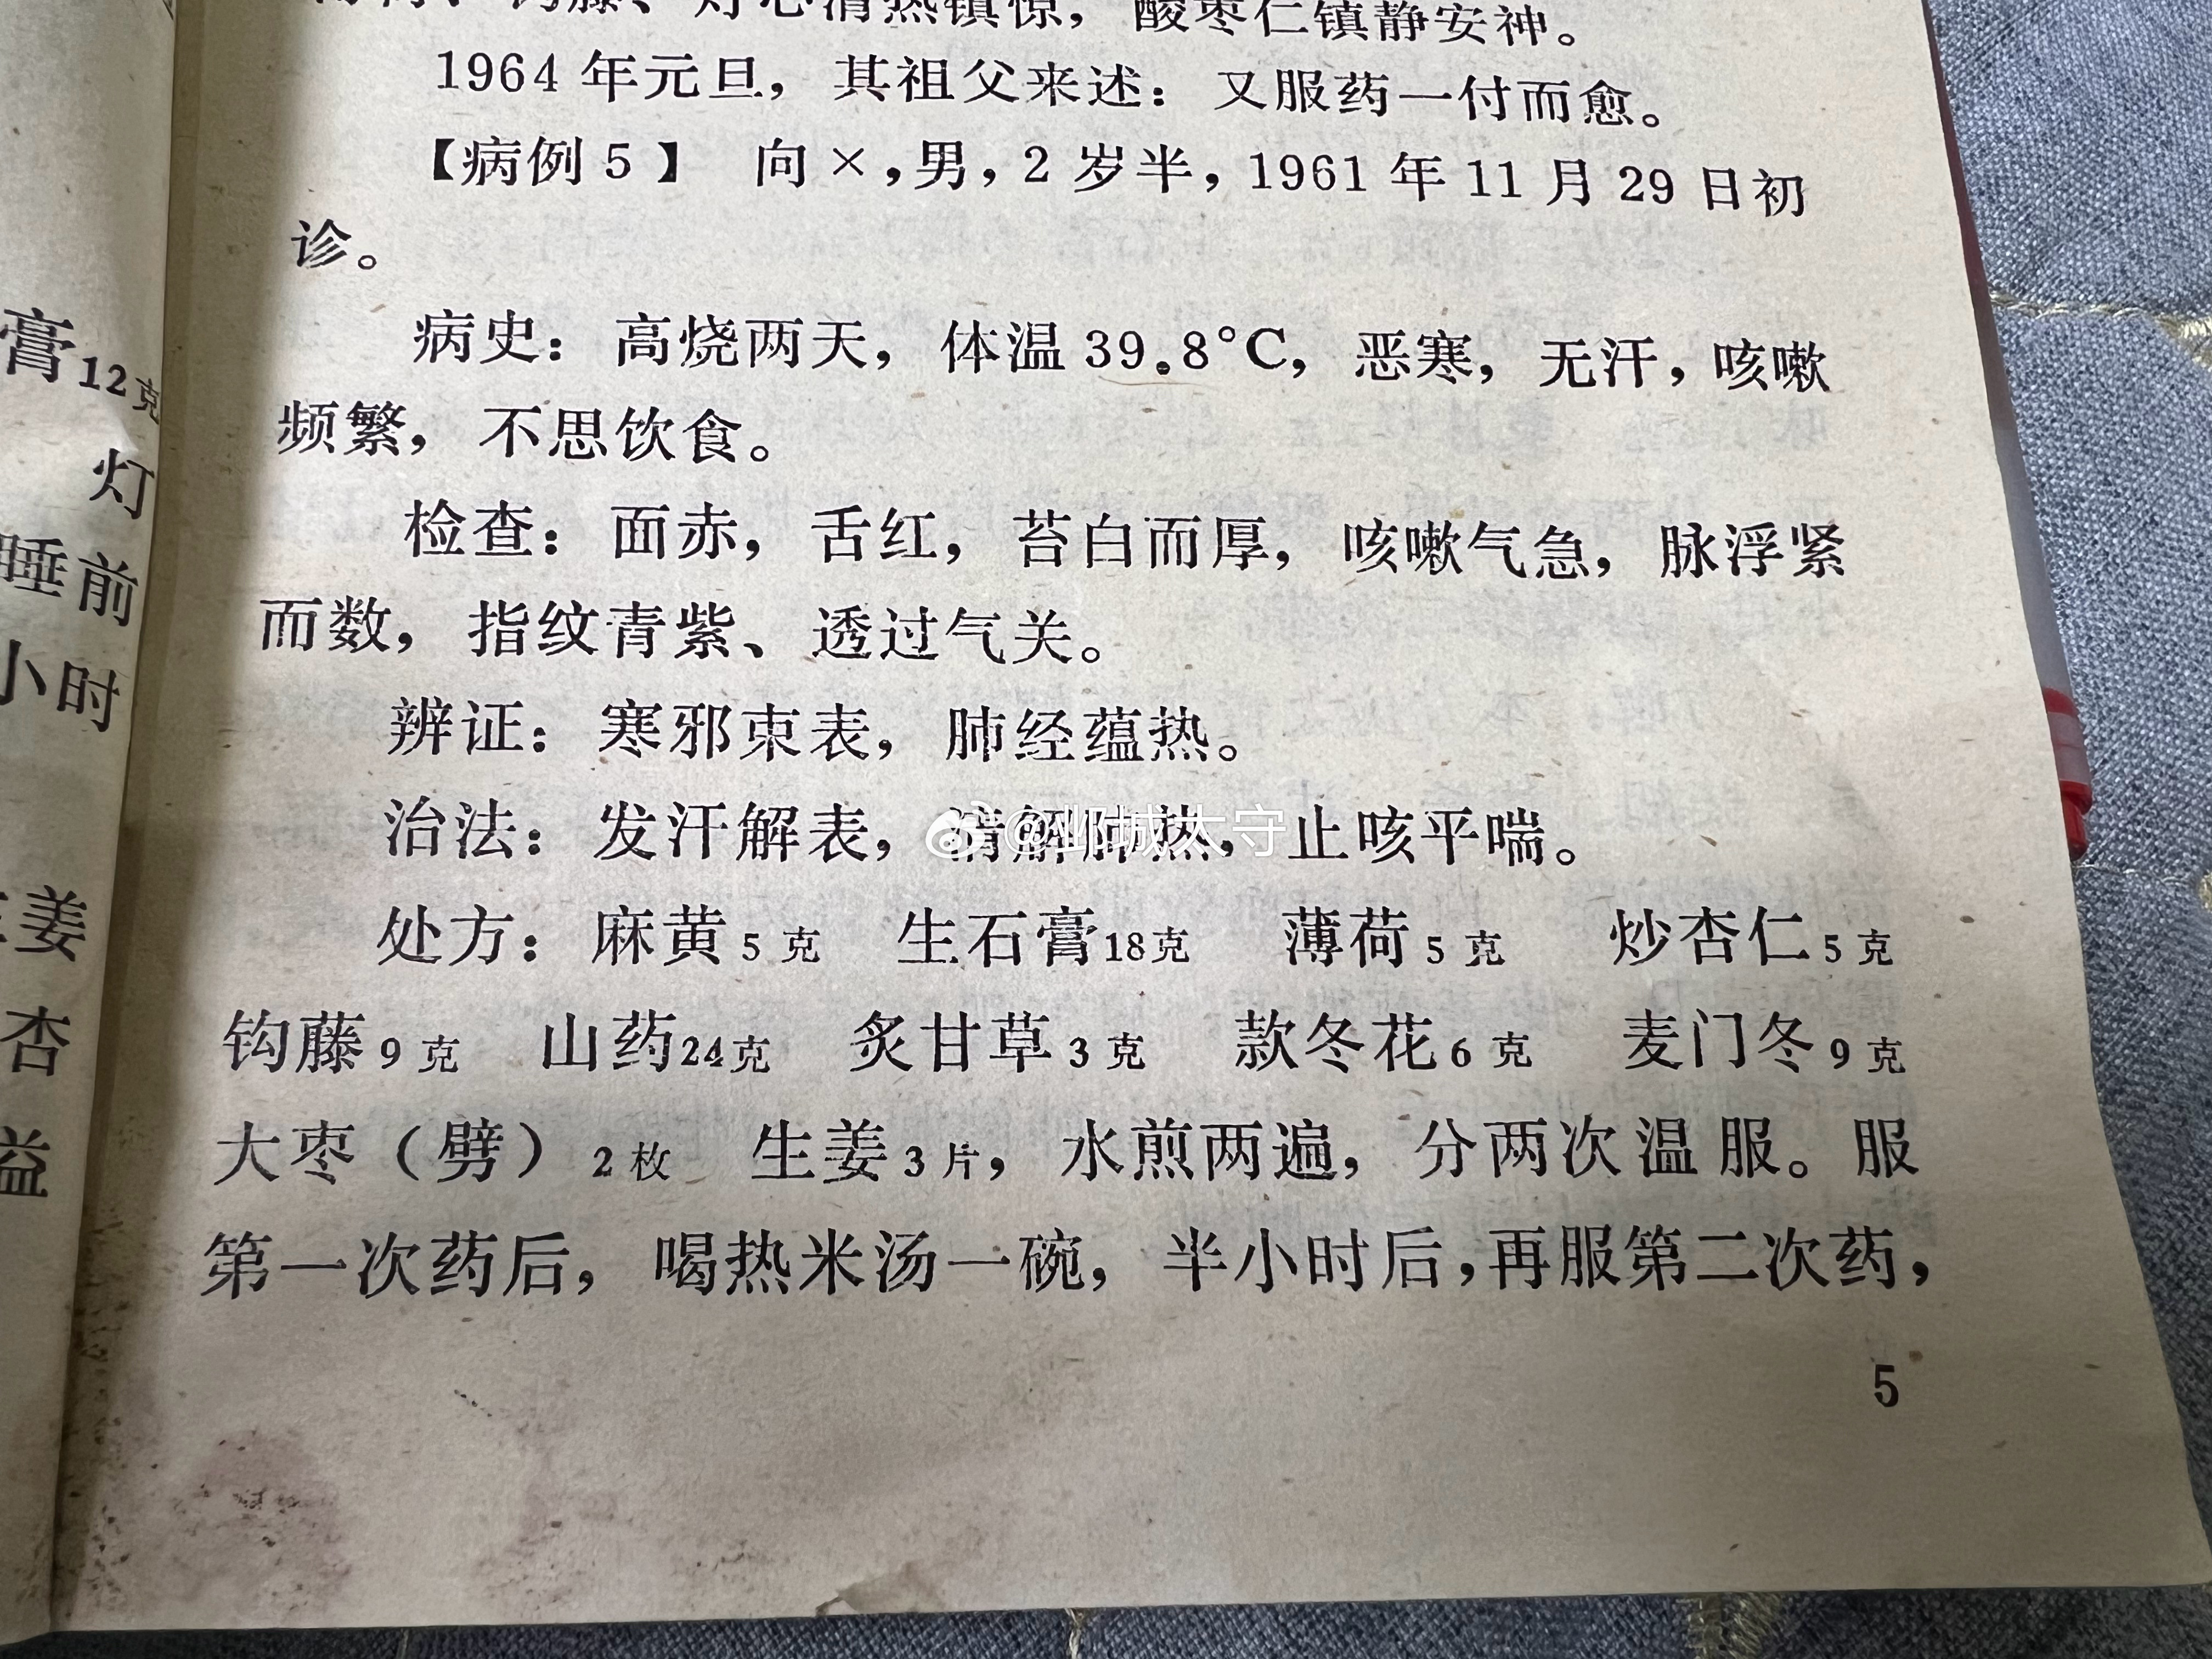 膏12克
灯
睡前
小时
姜
杏
益
钩藤、灯心清热镇惊，酸枣仁镇静安神。
1964年元旦，其祖父来述：又服药一付而愈。
【病例5】 向×，男，2岁半，1961年11月29日初
诊。
病史：高烧两天，体温39.8°C，恶寒，无汗，咳嗽
频繁，不思饮食。
检查：面赤，舌红，苔白而厚，咳嗽气急，脉浮紧
而数，指纹青紫、透过气关。
辨证：寒邪束表，肺经蕴热。
治法：发汗解表，清解肺热，止咳平喘。
@邺城太守
处方：麻黄5克 生石膏18克 薄荷5克 炒杏仁5克
钩藤9克 山药24克 炙甘草3克 款冬花6克 麦门冬9克
大枣（劈）2枚 生姜3片，水煎两遍，分两次温服。服
第一次药后，喝热米汤一碗，半小时后，再服第二次药，
5